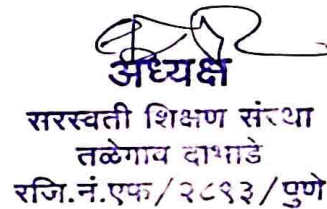 अध्यक्ष
सरस्वती शिक्षण संस्था
तळेगाव दाभाडे
रजि.नं.एफ/२८९३/पुणे